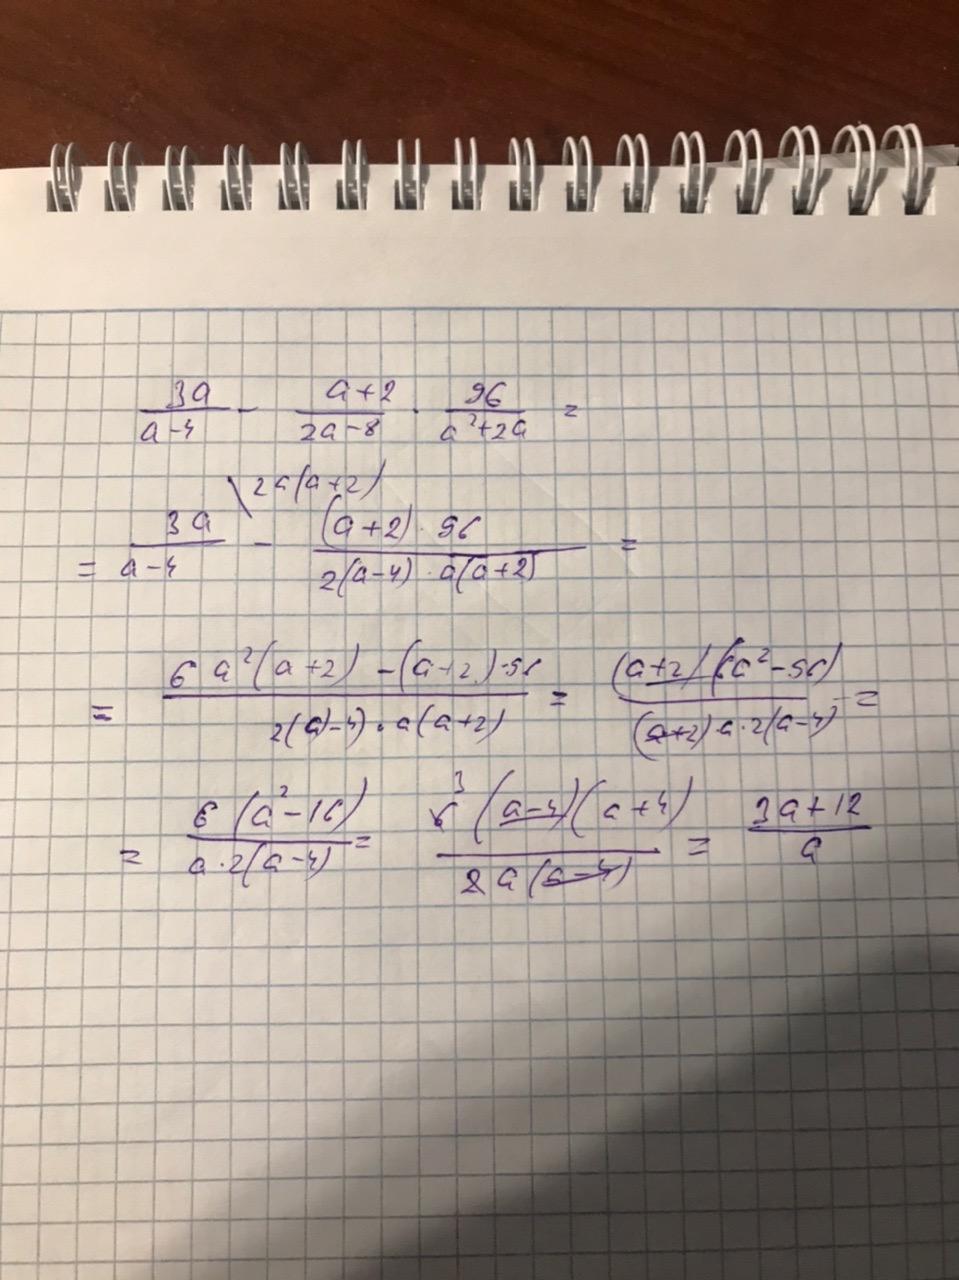 3a/(a-4) - (a+2)/(2a-8) · 96/(a²+2a) =
\2a(a+2)
= 3a/(a-4) - ((a+2)·96)/(2(a-4)·a(a+2)) =
= (6a²(a+2) - (a+2)·96)/(2(a-4)·a(a+2)) = ((a+2)(6a²-96))/((a+2)·a·2(a-4)) =
= (6(a²-16))/(a·2(a-4)) = (6³(a-4)(a+4))/(2a(a-4)) = (3a+12)/a